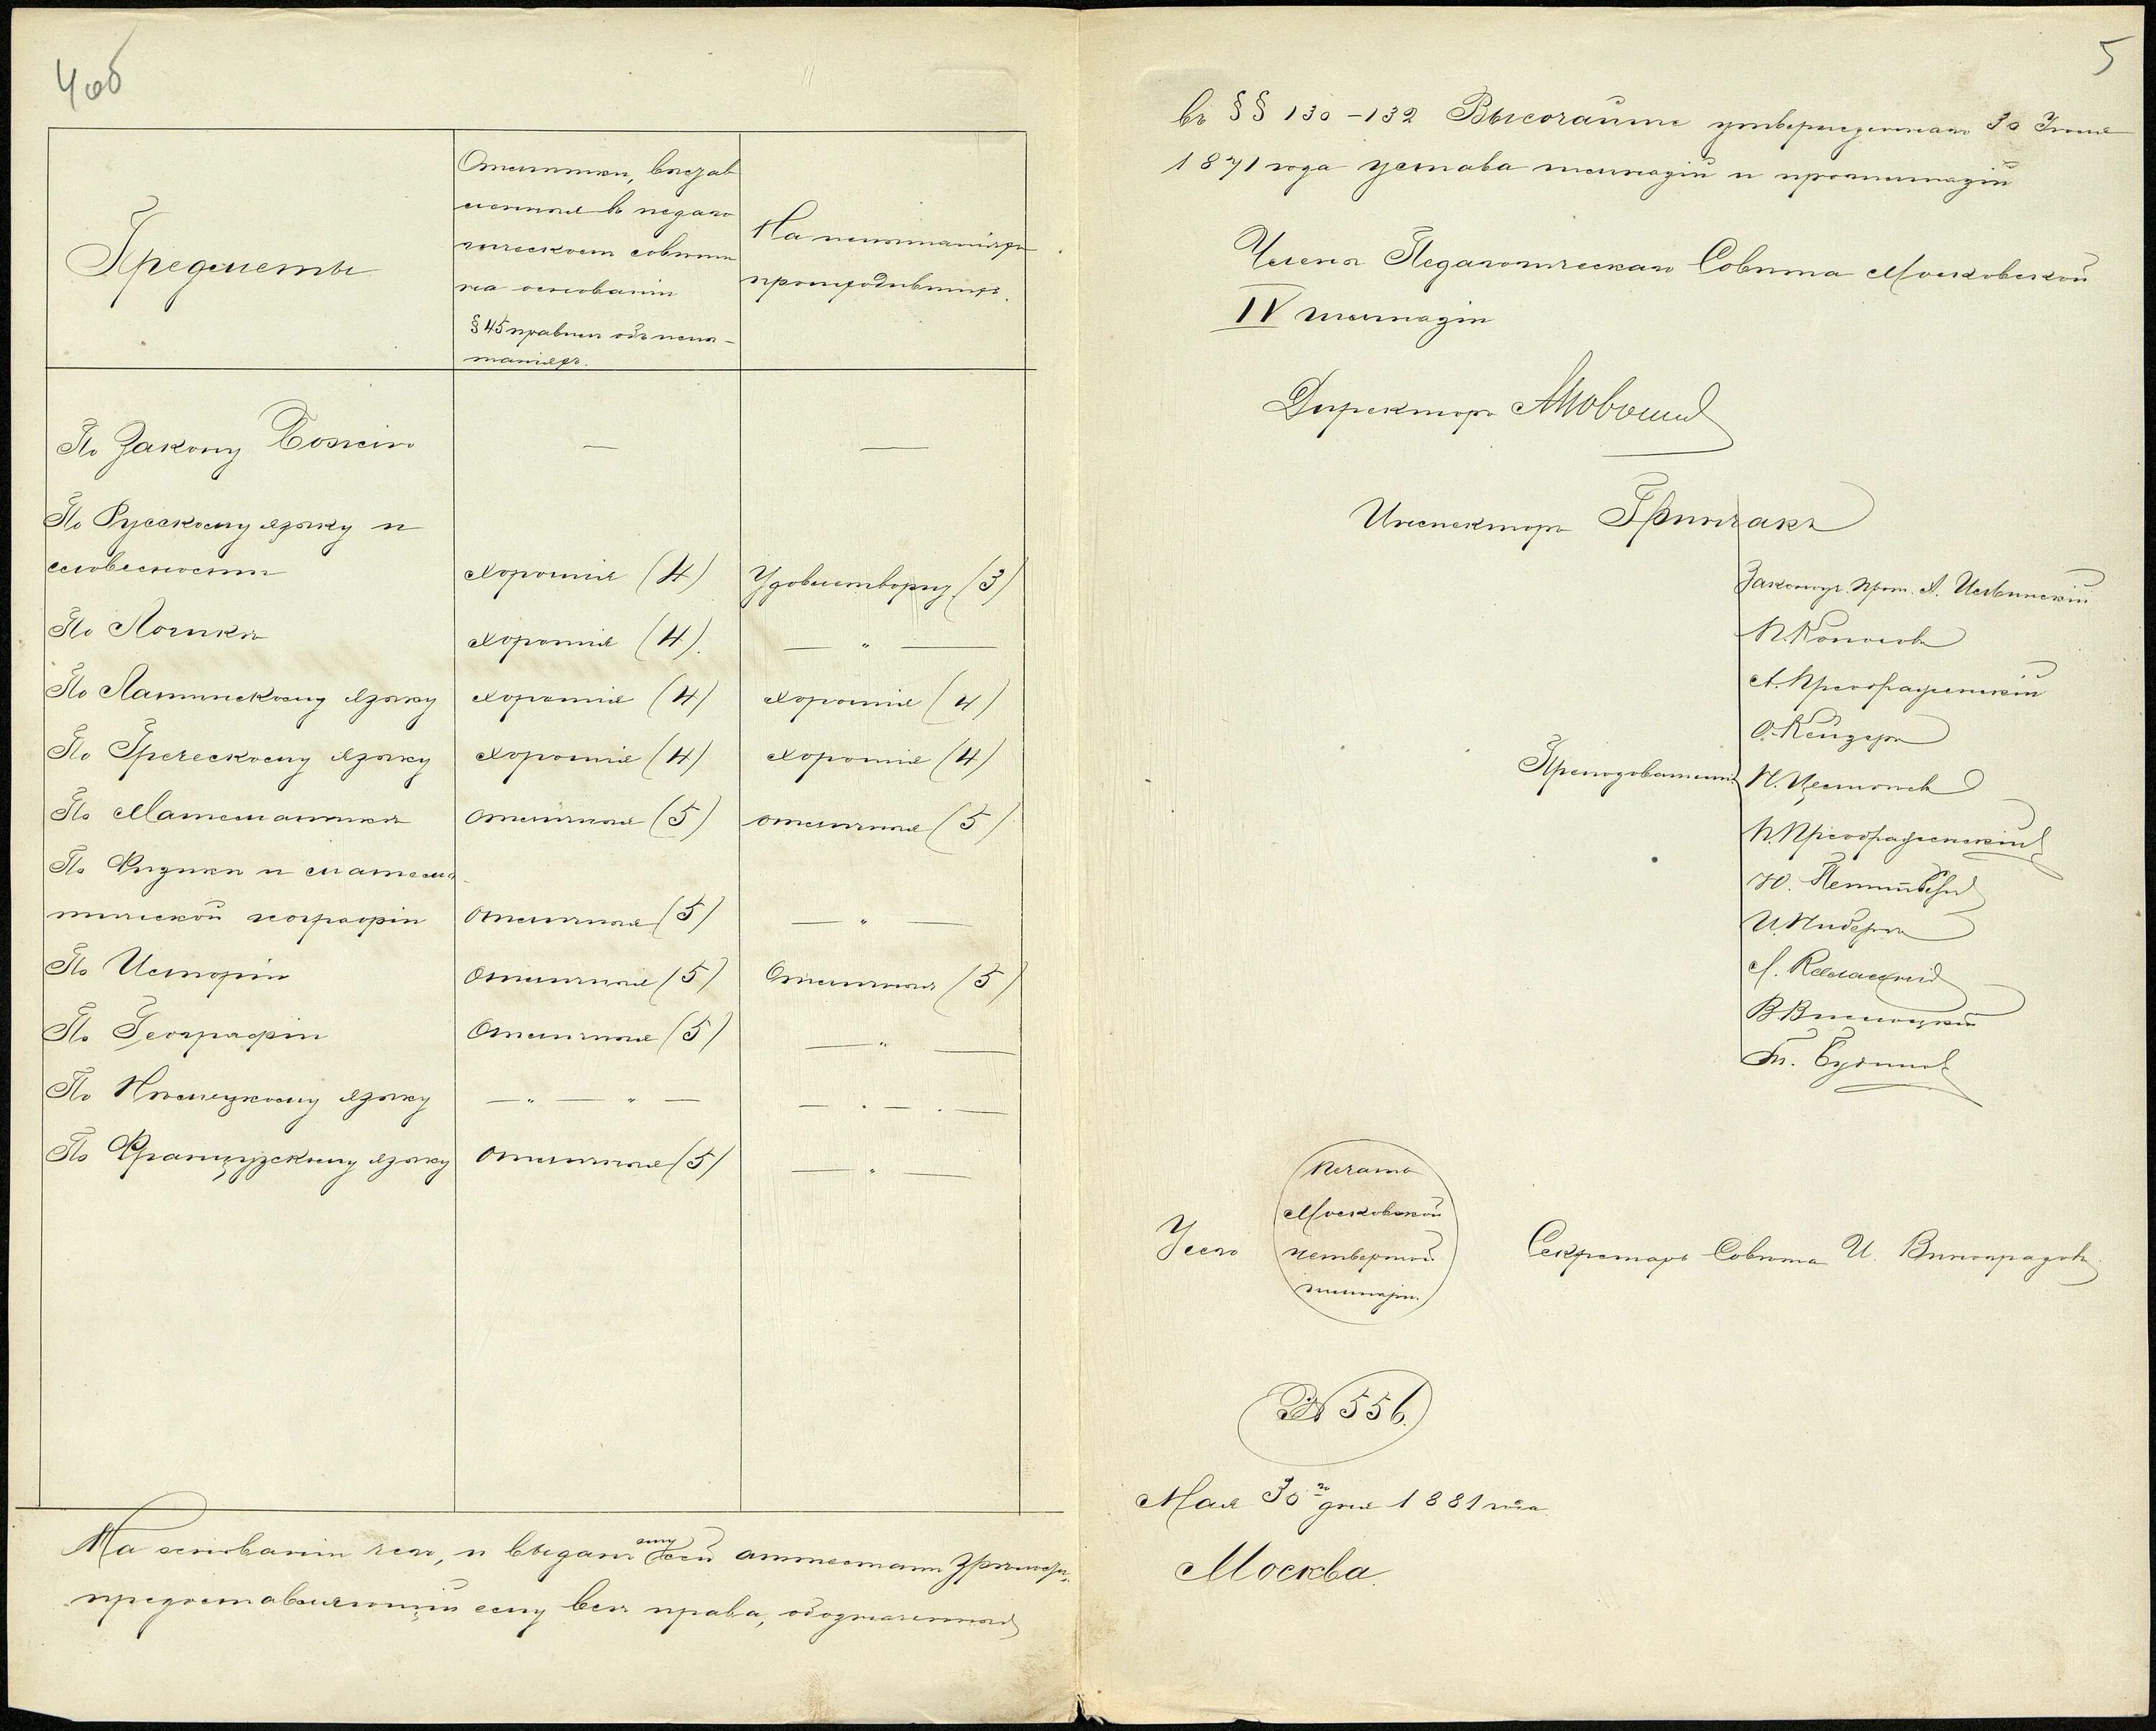 4об
Предметы
Отметки, выстав
ленныя въ педаго
гическомъ совѣтѣ
на основаніи
§ 45 правилъ объ испы-
таніяхъ.
На испытаніяхъ
происходившихъ.
По Закону Божію — —
По Русскому языку и
словесности хорошія (4) Удовлетворит. (3)
По Логикѣ хорошія (4). — " —
По Латинскому языку хорошія (4) хорошія (4)
По Греческому языку хорошія (4) хорошія (4)
По Математикѣ отличныя (5) отличныя (5)
По Физикѣ и матема
тической географіи отличныя (5) — " —
По Исторіи отличныя (5) Отличныя (5)
По Географіи Отличныя (5) — " —
По Нѣмецкому языку — " — " — — . — . —
По Французскому языку отличныя (5) — " —
На основаніи чего, и выданъ ему сей аттестатъ зрѣлости,
предоставляющій ему всѣ права, обозначенныя
5
въ §§ 130-132 Высочайше утвержденнаго 30 Іюля
1871 года устава гимназій и прогимназій
Члены Педагогическаго Совѣта Московской
IV гимназіи
Директоръ
Инспекторъ Гринчакъ
Преподаватели
Законоуч. Прот. А.
П. Колосовъ
А. Преображенскій
О. Кейзеръ
П. Преображенскій
В. Висноцкій
Усего
Печать
Московской
четвертой
гимназіи.
Секретарь Совѣта И. Виноградовъ
№ 556.
Мая 30го дня 1881 года
Москва.